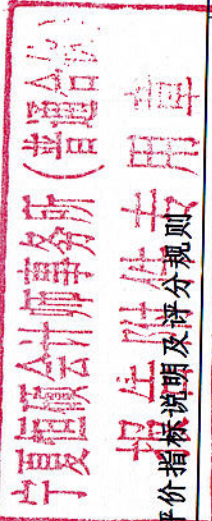 宁夏恒硕会计师事务所(普通合伙)
报告附件专用章
评价指标说明及评分规则